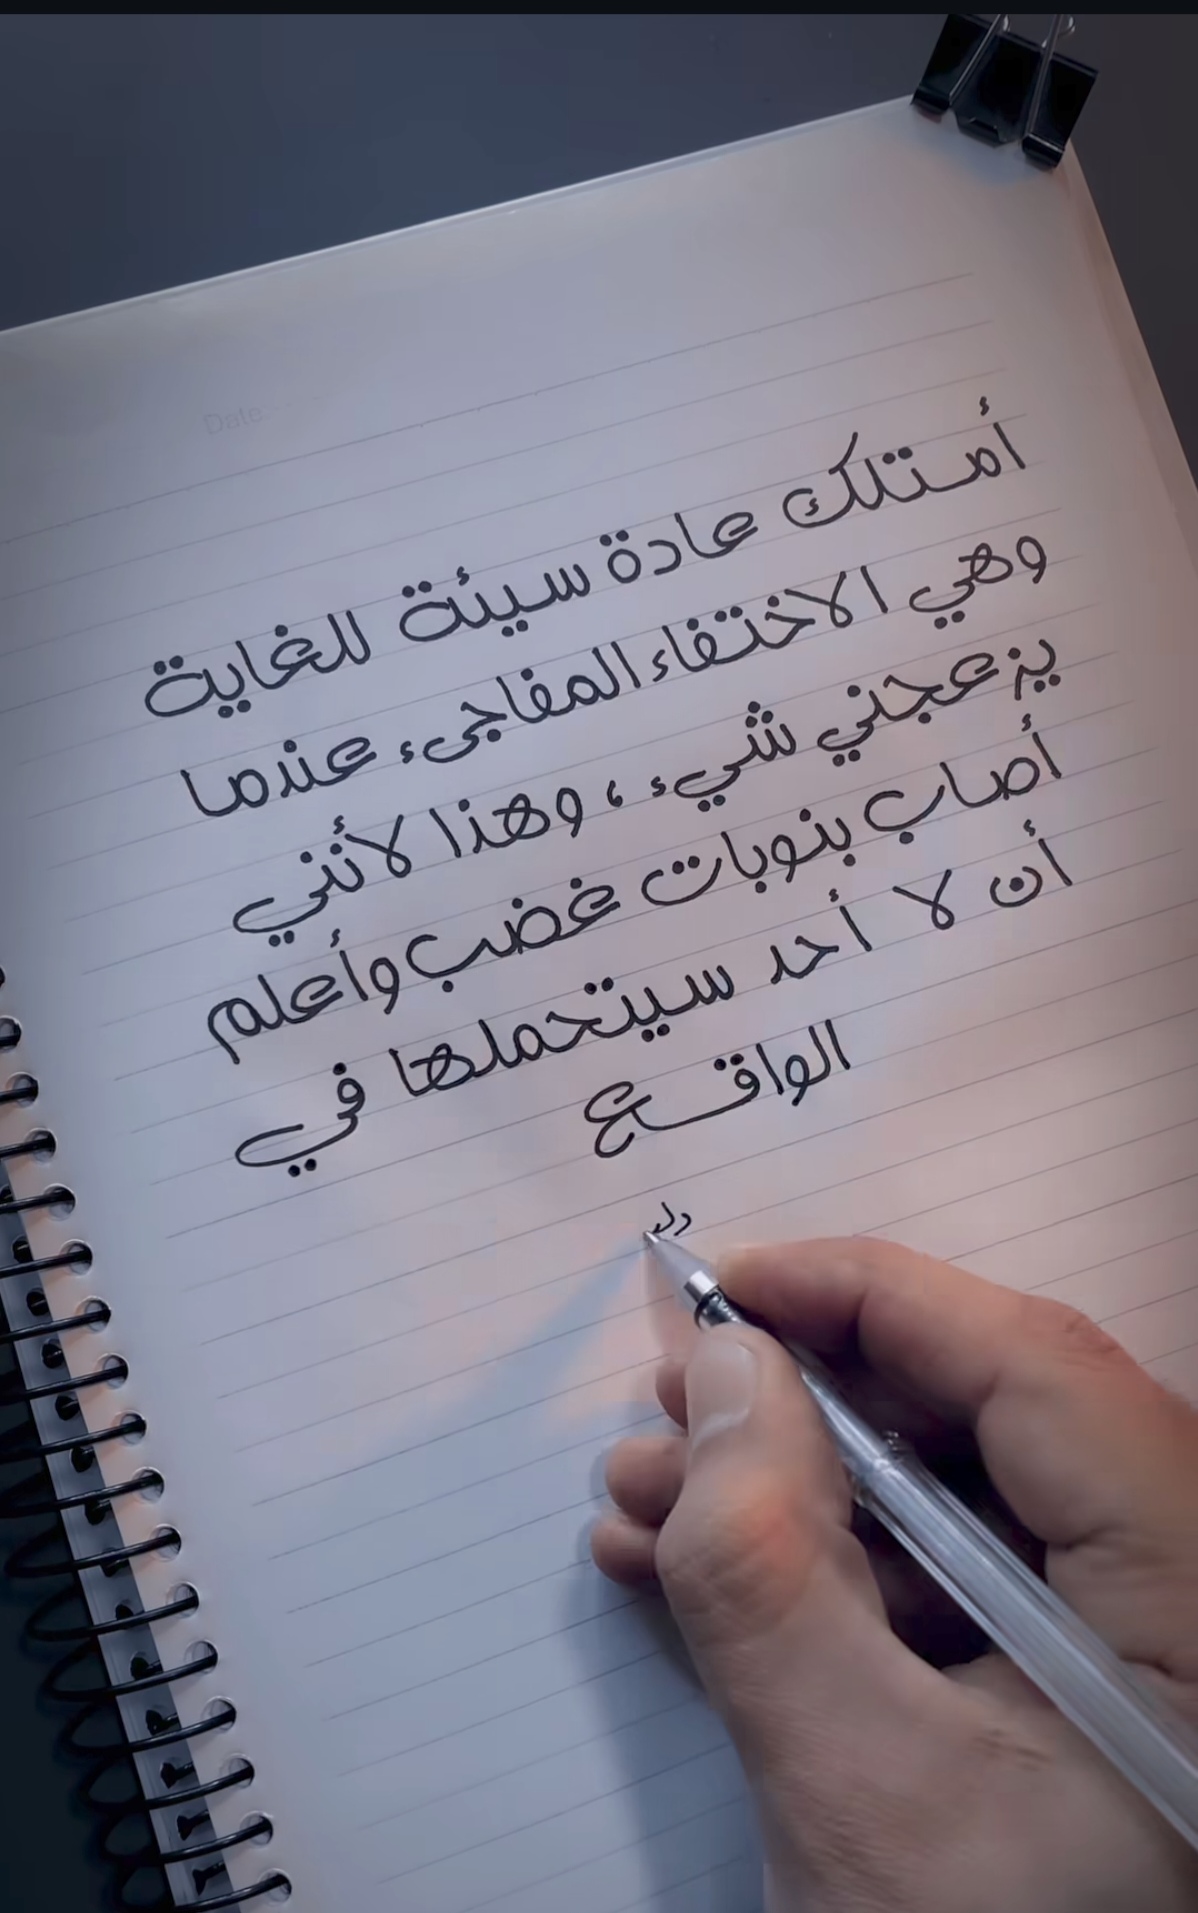 Date
أمتلك عادة سيئة للغاية
وهي الاختفاء المفاجىء عندما
يزعجني شيء، وهذا لأنني
أصاب بنوبات غضب وأعلم
أن لا أحد سيتحملها في
الواقع